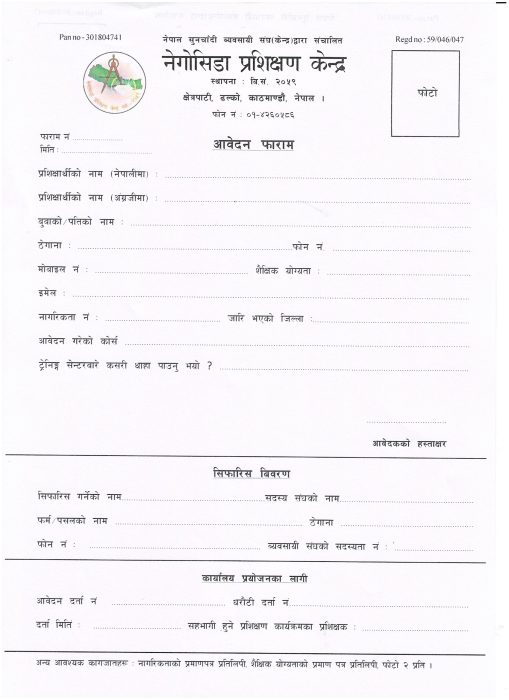 Pan no - 301804741
नेपाल सुनचाँदी व्यवसायी संघ(केन्द्र)द्वारा संचालित
Regd no : 59/046/047
नेगोसिडा प्रशिक्षण केन्द्र
स्थापना : वि.सं. २०५९
क्षेत्रपाटी, ढल्को, काठमाण्डौ, नेपाल ।
फोन नं : ०१-४२६०५८६
फोटो
फाराम नं
मिति :
आवेदन फाराम
प्रशिक्षार्थीको नाम (नेपालीमा) :
प्रशिक्षार्थीको नाम (अंग्रजीमा) :
बुवाको/पतिको नाम :
ठेगाना : फोन नं
मोबाइल नं : शैक्षिक योग्यता :
इमेल :
नागरिकता नं : जारि भएको जिल्ला :
आवेदन गरेको कोर्स
ट्रेनिङ्ग सेन्टरबारे कसरी थाहा पाउनु भयो ?
आवेदकको हस्ताक्षर
सिफारिस बिवरण
सिफारिस गर्नेको नाम सदस्य संघको नाम
फर्म/पसलको नाम ठेगाना
फोन नं : व्यवसायी संघको सदस्यता नं :
कार्यालय प्रयोजनका लागी
आवेदन दर्ता नं धरौटी दर्ता नं
दर्ता मिति : सहभागी हुने प्रशिक्षण कार्यक्रमका प्रशिक्षक :
अन्य आवश्यक कागजातहरू : नागरिकताको प्रमाणपत्र प्रतिलिपी, शैक्षिक योग्यताको प्रमाण पत्र प्रतिलिपी, फोटो २ प्रति ।